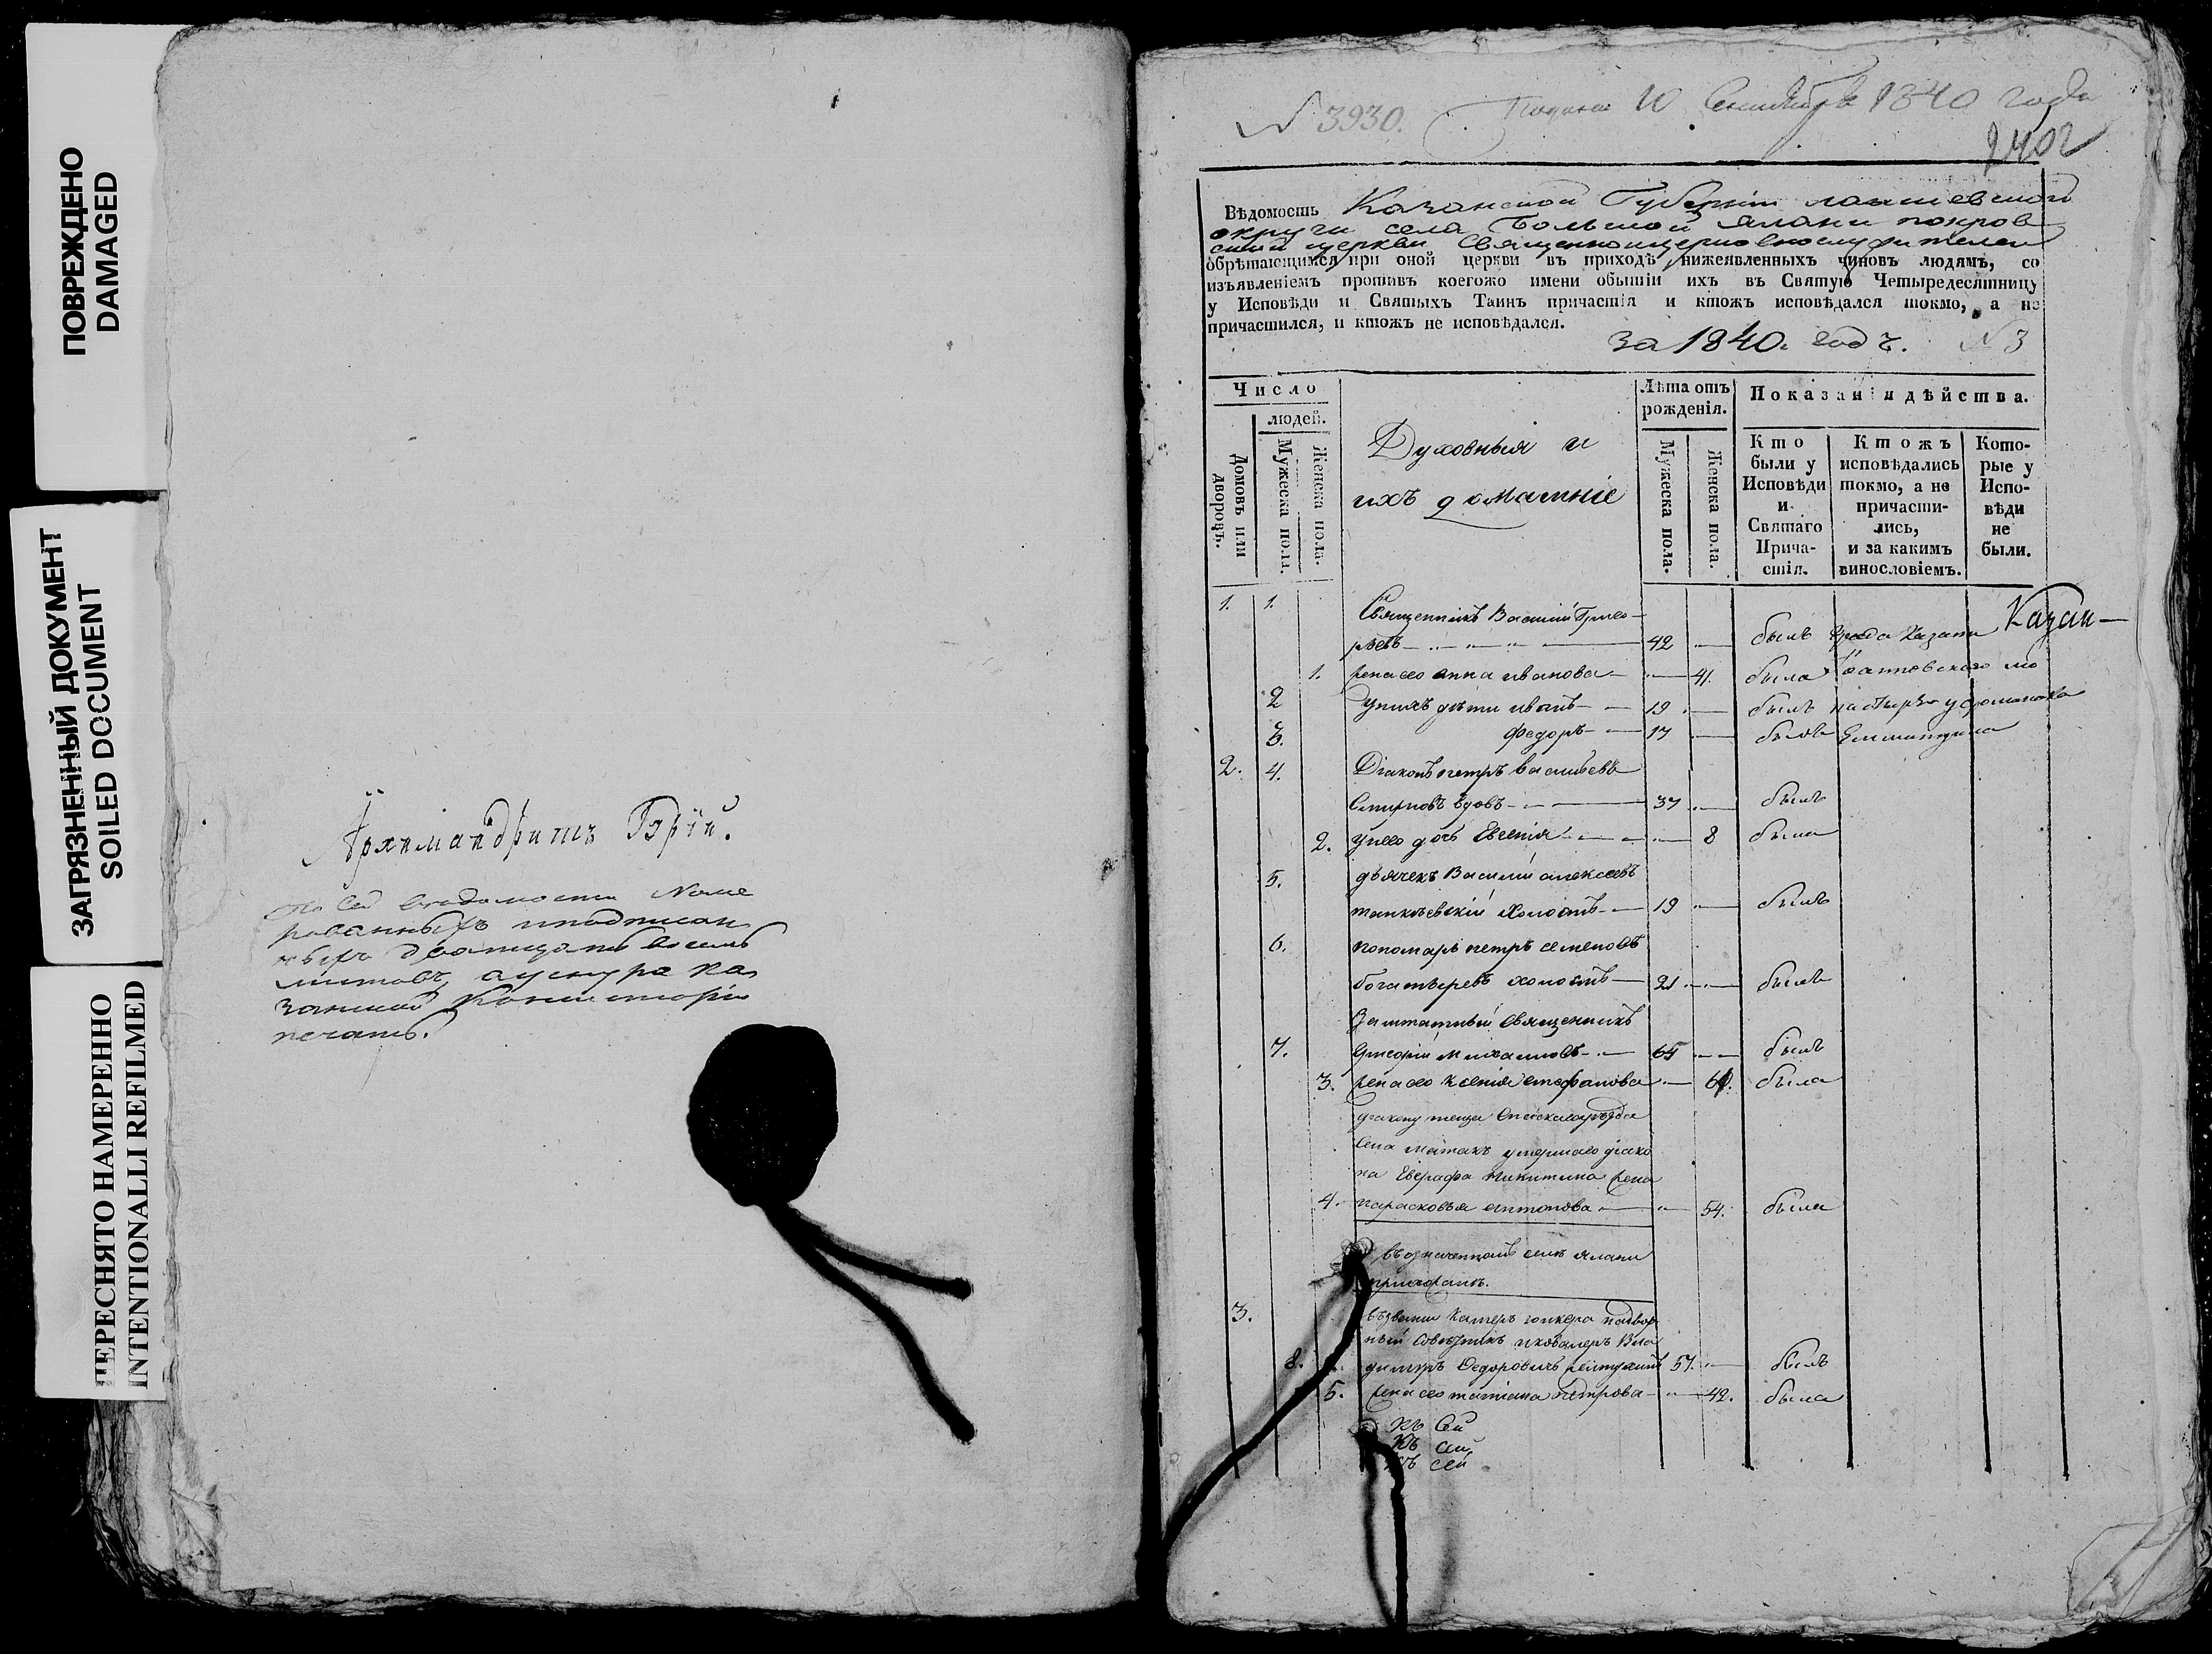 ПОВРЕЖДЕНО
DAMAGED
ЗАГРЯЗНЕННЫЙ ДОКУМЕНТ
SOILED DOCUMENT
ПЕРЕСНЯТО НАМЕРЕННО
INTENTIONALLI REFILMED
Архимандритъ Гэрій.
По сей ведомости Номе
рованныхъ иподписан
ныхъ дватцать восемь
листовъ, аушнура Ка
занской Консисторіи
печать.
№ 3930. Подана 10 Сентября 1840 года
2402
Вѣдомость Казанской Губерніи лаишевской
округи села Большой Елани покров
ской церкви Священноицерковнослужителей
обрѣтающимся при оной церкви въ приходѣ нижеявленныхъ чиновъ людямъ, со
изъявленіемъ противъ коегожо имени обытіи ихъ въ Святую Четыредесятницу
у Исповѣди и Святыхъ Таинъ причастія и ктожъ исповѣдался токмо, а не
причастился, и ктожъ не исповѣдался.
за 1840. годъ. № 3
Число
людей.
Домовъ или дворовъ.
Мужеска пола.
Женска пола.
Духовныя и
ихъ домашніе
Лѣта отъ рожденія.
Мужеска пола.
Женска пола.
Показанія дѣйства.
Кто были у Исповѣди и Святаго Причастія.
Ктожъ исповѣдались токмо, а не причастились, и за какимъ винословіемъ.
Которые у Исповѣди не были.
1. 1. Священникъ Василій Григо
рьевъ 42 былъ града Казани Казан
1. жена его анна иванова 41. была
2 унихъ дѣти иванъ 19 былъ
3. Федоръ 17 былъ
2. 4. Діаконъ петръ васильевъ
Смирновъ вдовъ 37 былъ
2. унего дочь Евгенія 8 была
5. дьячекъ Василій алексеевъ
танкѣевскій Холостъ 19 былъ
6. пономарь петръ семеновъ
богатыревъ холостъ 21 былъ
Заштатный священникъ
7. Григорій михаиловъ 65 былъ
3. жена его ксенія стефанова 61. была
діакону теща Спаскаго уѣзда
села матакъ умершаго діако
на Евграфа Никитина жена
4. парасковья антонова 54. была
въозначенномъ селѣ елани
прихожанъ.
3. въ званіи Камеръ юнкера надвор
ный Советникъ икавалеръ Вла
8. димиръ Федоровичь 57. былъ
5. жена его татіана петрова 42. была
Къ Сей
Къ сей
Къ сей